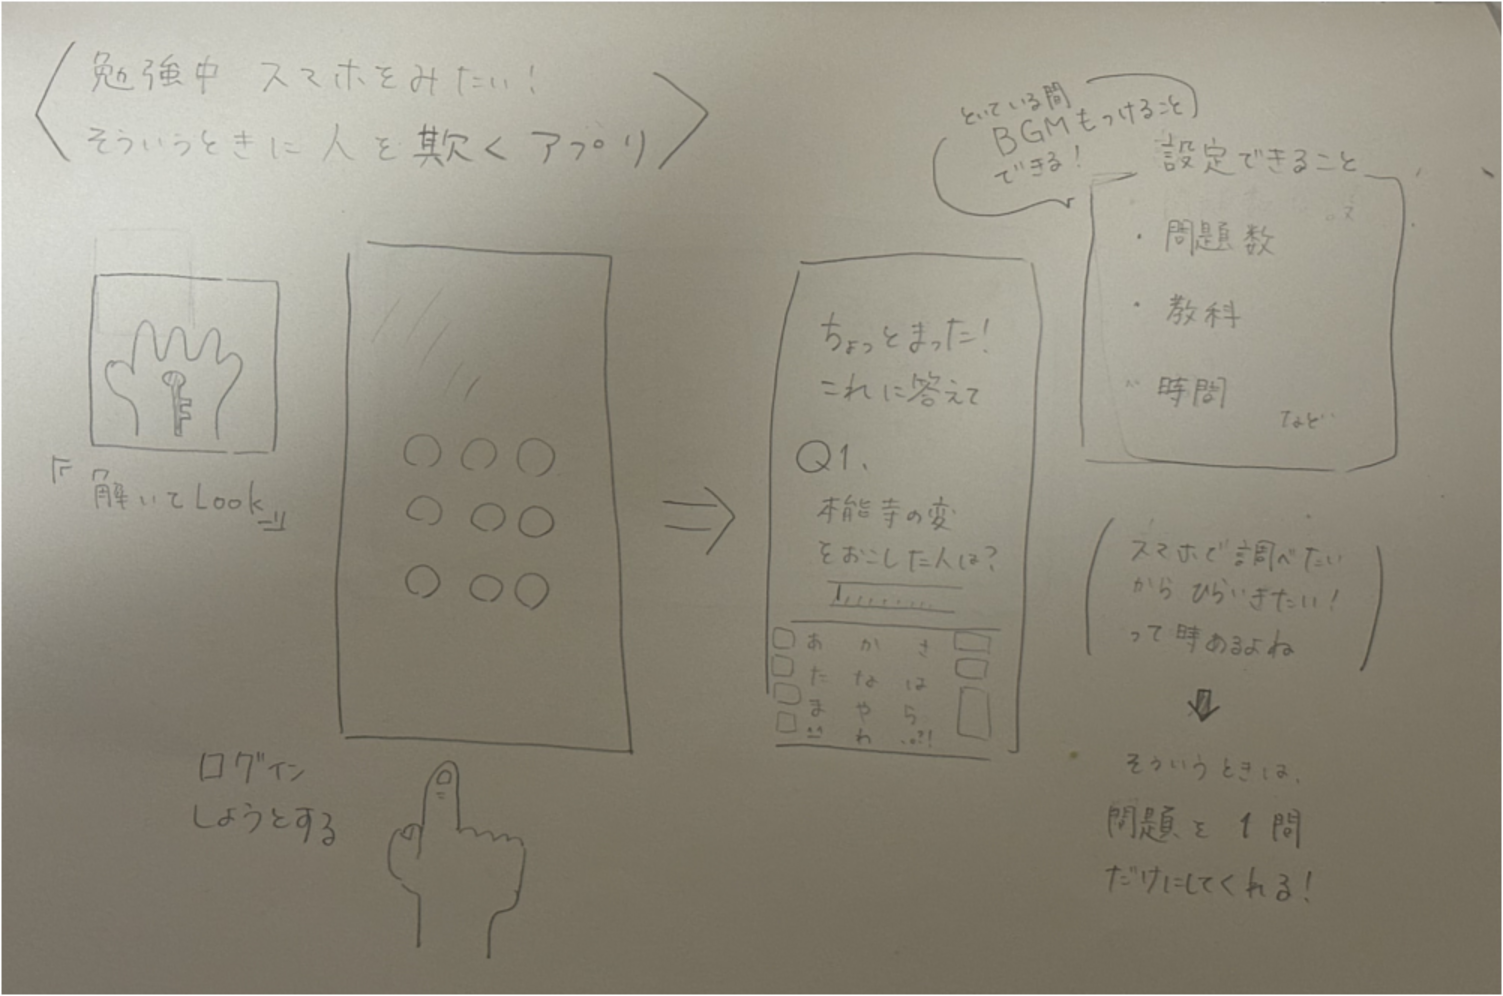 勉強中 スマホをみたい!
そういうときに人を欺くアプリ
『解いてLook』
ログイン
しようとする
ちょっとまった!
これに答えて
Q1、
本能寺の変
をおこした人は?
あ か さ
た な は
ま や ら
わ 、。?!
といている間
BGMもつけること
できる!
設定できること
・問題数
・教科
・時間
など
スマホで調べたい
からひらいきたい!
って時あるよね
そういうときは、
問題を1問
だけにしてくれる!